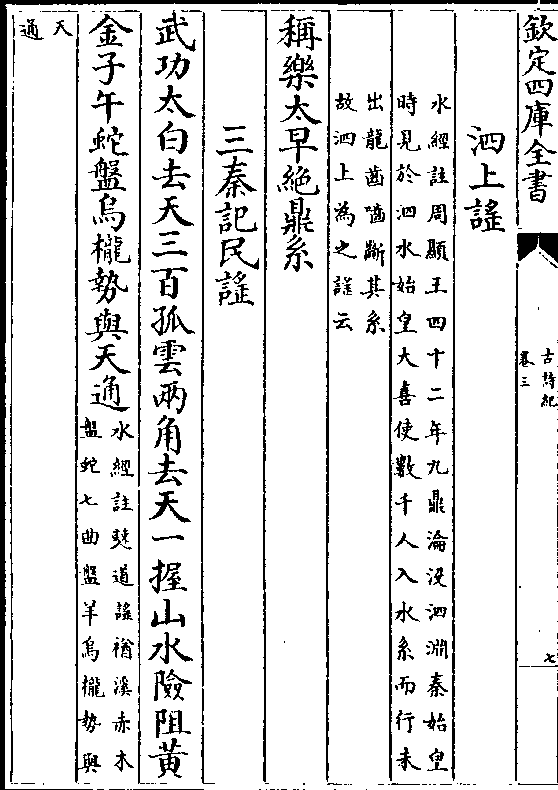 欽定四庫全書
古詩紀
卷三
七
泗上謡
水經註周顯王四十二年九鼎淪没泗淵秦始皇
時見於泗水始皇大喜使數千人入水系而行未
出龍齒嚙斷其系
故泗上為之謡云
稱樂太早絶鼎系
三秦記民謡
武功太白去天三百孤雲兩角去天一握山水險阻黄
金子午蛇盤烏櫳勢與天通
水經註僰道謡楢溪赤木
盤蛇七曲盤羊烏櫳勢與
天
通